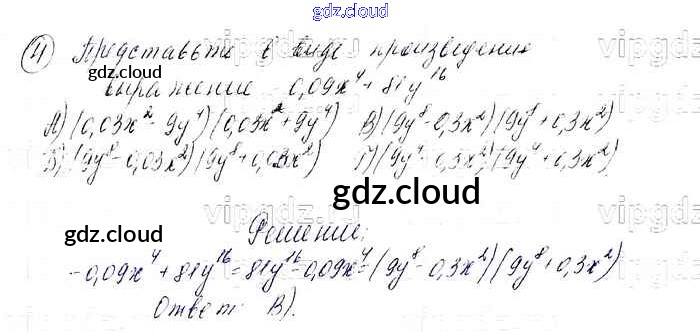 gdz.cloud
4) Представьте в виде произведения
выражение -0,09x⁴ + 81y¹⁶
А) (0,03x² - 9y⁴)(0,03x² + 9y⁴) В) (9y⁸ - 0,3x²)(9y⁸ + 0,3x²)
Б) (9y⁸ - 0,03x²)(9y⁸ + 0,03x²) Г) (9y⁴ - 0,3x²)(9y⁴ + 0,3x²)
gdz.cloud
gdz.cloud
Решение:
gdz.cloud
-0,09x⁴ + 81y¹⁶ = 81y¹⁶ - 0,09x⁴ = (9y⁸ - 0,3x²)(9y⁸ + 0,3x²)
Ответ: В).
gdz.cloud